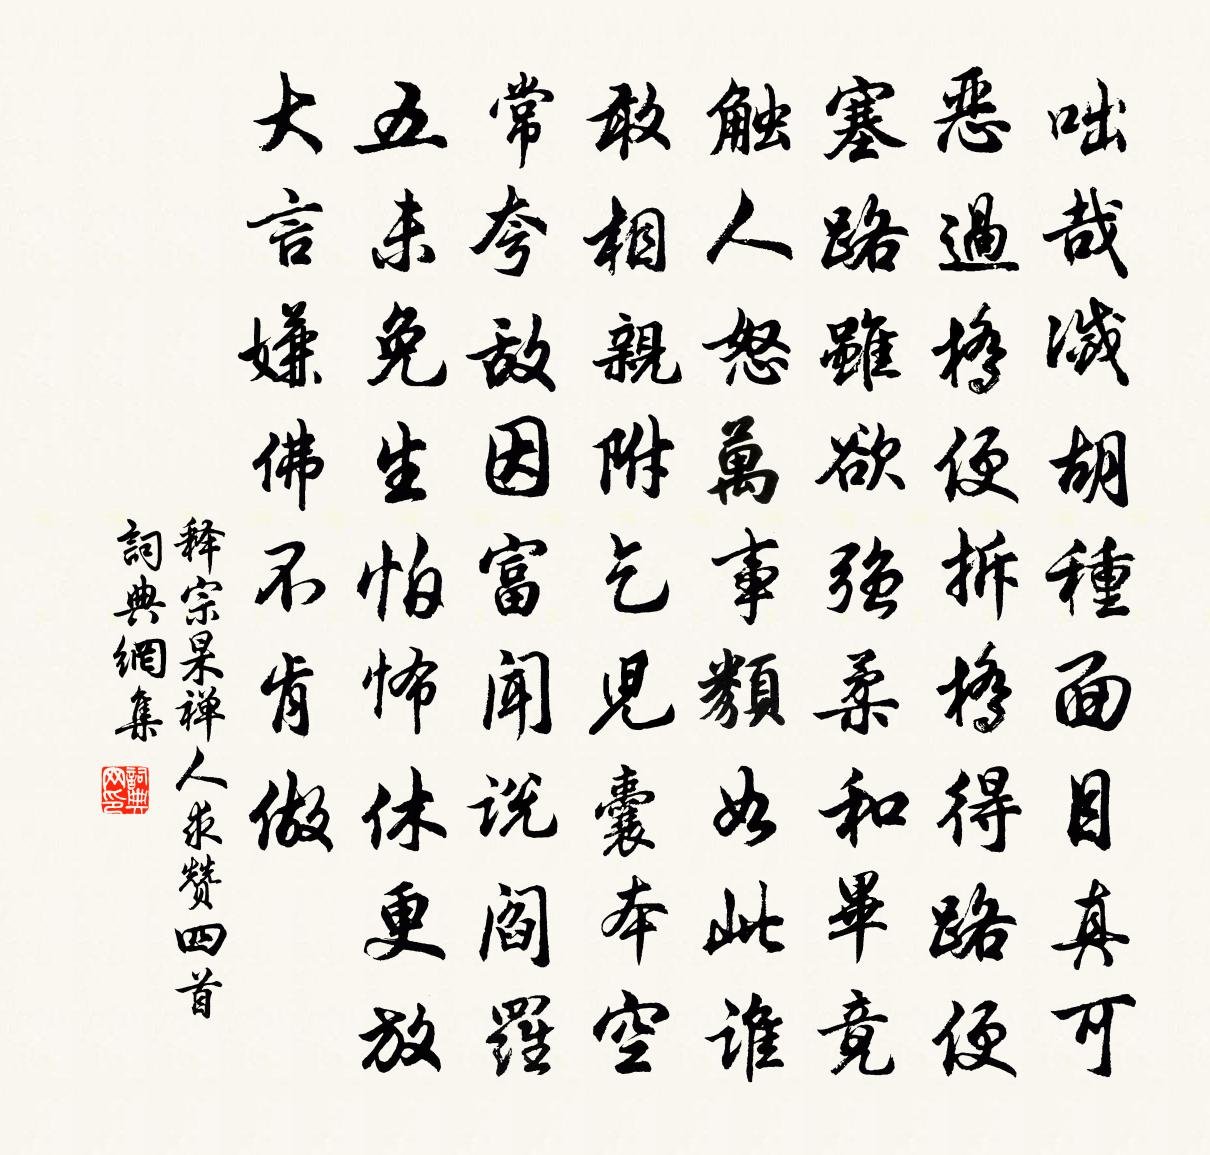 咄哉滅胡種面目真可
恶過橋便拆橋得路便
塞路雖欲强柔和畢竟
触人怒萬事類如此谁
敢相親附乞児囊本空
常夸敌因富闻说阎羅
五未免生怕怖休更放
大言嫌佛不肯做
释宗杲禅人求赞四首
詞典網集
詞典网印